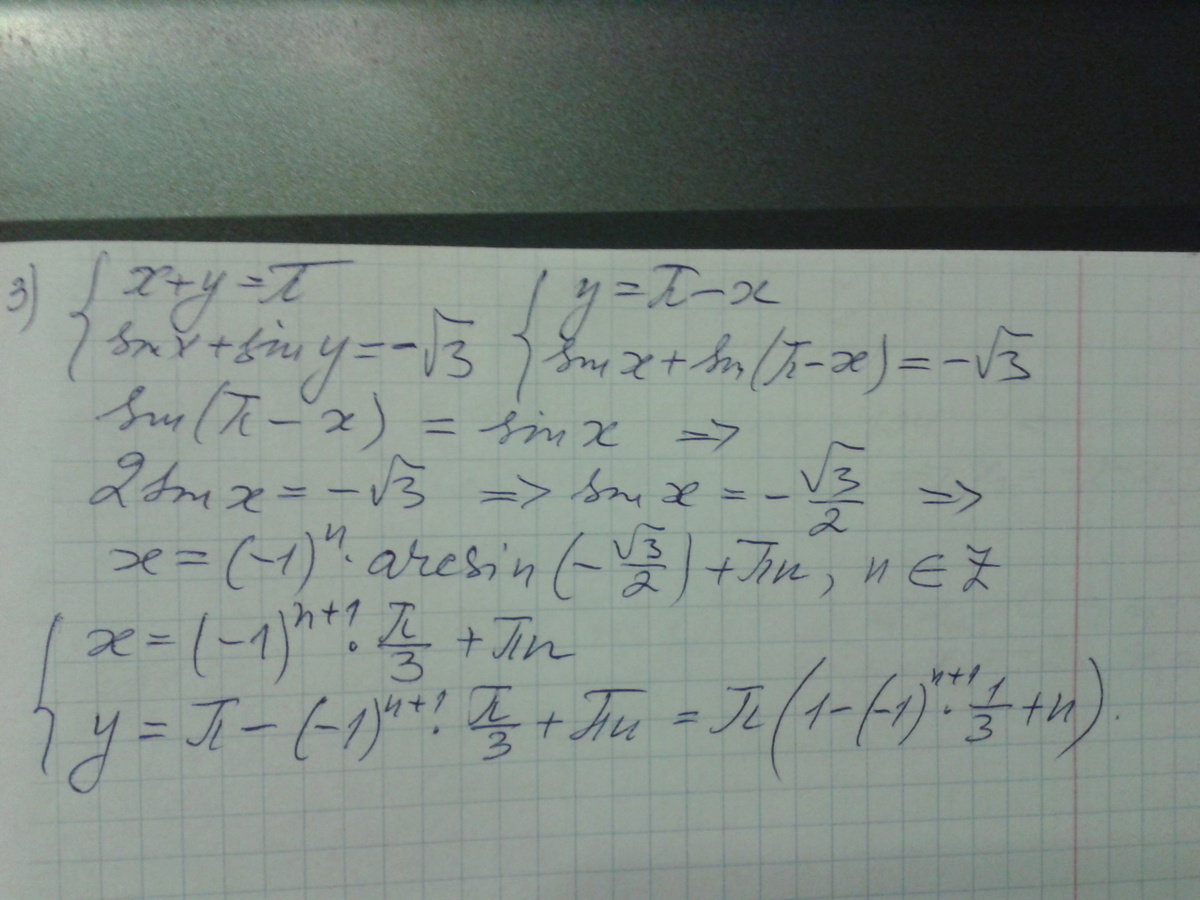 3) { x+y=π { y=π-x
sin x + sin y = -√3 sin x + sin(π-x) = -√3
sin(π-x) = sin x =>
2 sin x = -√3 => sin x = -√3/2 =>
x = (-1)ⁿ · arcsin(-√3/2) + πn, n ∈ Z
{ x = (-1)ⁿ⁺¹ · π/3 + πn
y = π - (-1)ⁿ⁺¹ · π/3 + πn = π(1-(-1)ⁿ⁺¹ · 1/3 + n).